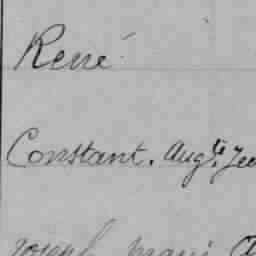 René
Constant. Aug.te
Joseph Marie